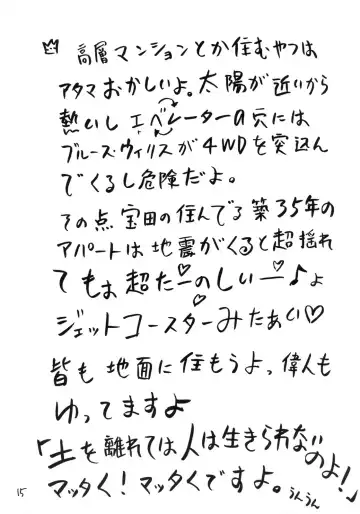 高層マンションとか住むやつは
アタマおかしいよ。太陽が近いから
熱いし エベレーターの穴には
ブルース・ウィリスが4WDを突込ん
でくるし危険だよ。
その点宝田の住んでる築35年の
アパートは地震がくると超揺れ
てもぉ超た―のしい―♪よ
ジェットコースターみたぁい♡
皆も地面に住もうよっ、偉人も
ゆってますよ
「土を離れては人は生きられないのよ!」
マッタく!マッタくですよ。うんうん
15